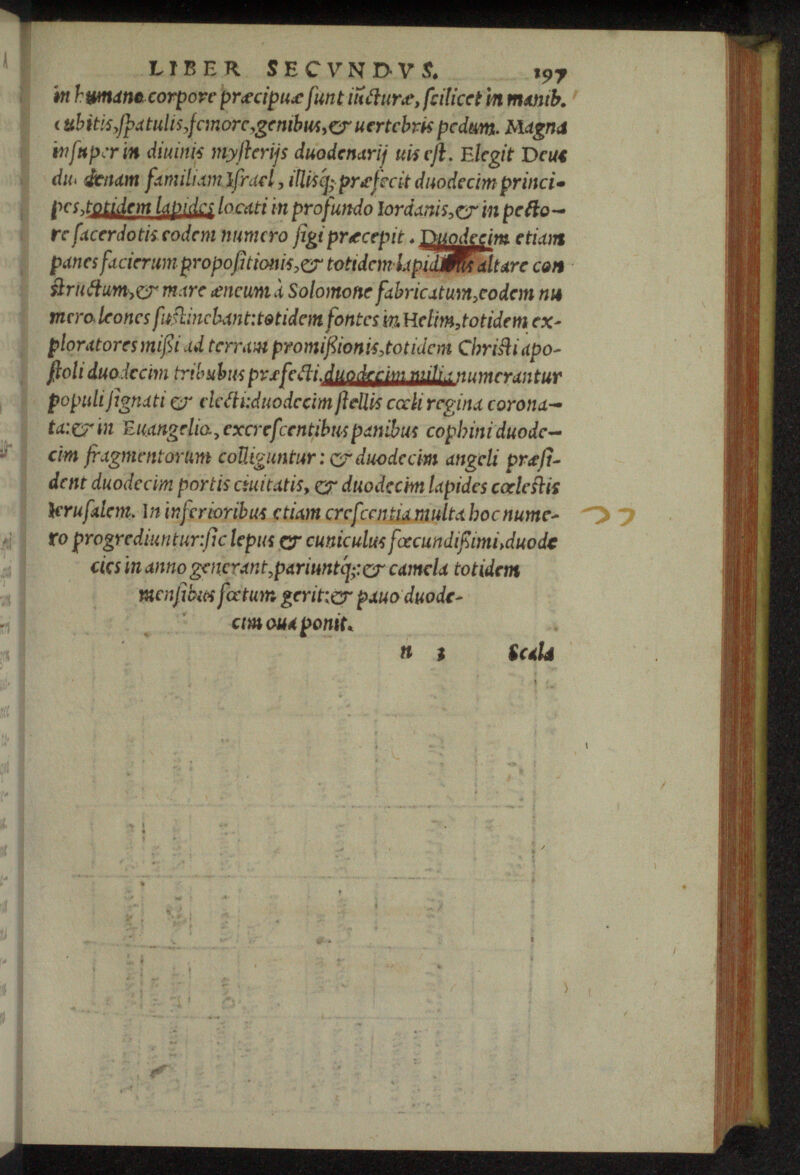 LIBER SECVNDVS. 197
in humano corpore præcipuæ sunt iūcturæ, scilicet in manib.
cubitis, spatulis, femore, genibus, & uertebris pedum. Magna
insuper in diuinis mysterijs duodenarij uis est. Elegit Deus
duodenam familiam Israel, illisq; præfecit duodecim princi-
pes, totidem lapides locati in profundo Iordanis, & in pecto-
re sacerdotis eodem numero figi præcepit. Duodecim etiam
panes facierum propositionis, & totidem lapidibus altare con
structum, & mare æneum à Solomone fabricatum, eodem nu
mero leones sustinebant: totidem fontes in Helim, totidem ex-
ploratores mißi ad terram promißionis, totidem Christi apo-
stoli duodecim tribubus præfecti. duodecim milia numerantur
populi signati & electi: duodecim stellis cœli regina corona-
ta: & in Euangelio, excrescentibus panibus cophini duode-
cim fragmentorum colliguntur: & duodecim angeli præsi-
dent duodecim portis ciuitatis, & duodecim lapides cœlestis
Ierusalem. In inferioribus etiam crescentia multa hoc nume-
ro progrediuntur: sic lepus & cuniculus fœcundißimi, duode
cies in anno generant, pariuntq;: & camela totidem
mensibus fœtum gerit: & pauo duode-
cim oua ponit.
n 3 Scala